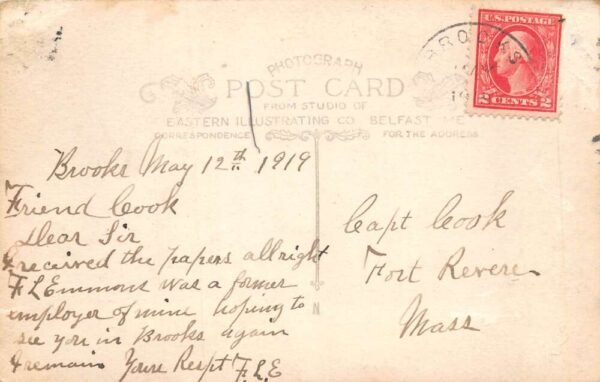 BROOKS
19
U.S. POSTAGE
2 CENTS 2
PHOTOGRAPH
POST CARD
FROM STUDIO OF
EASTERN ILLUSTRATING CO. BELFAST ME.
CORRESPONDENCE
FOR THE ADDRESS
Brooks May 12th 1919
Friend Cook
Dear Sir
I received the papers allright
F L Emmons was a former
employer of mine hoping to
see you in Brooks again
I remain Yours Respt F.L.E
Capt Cook
Fort Revere
Mass
N